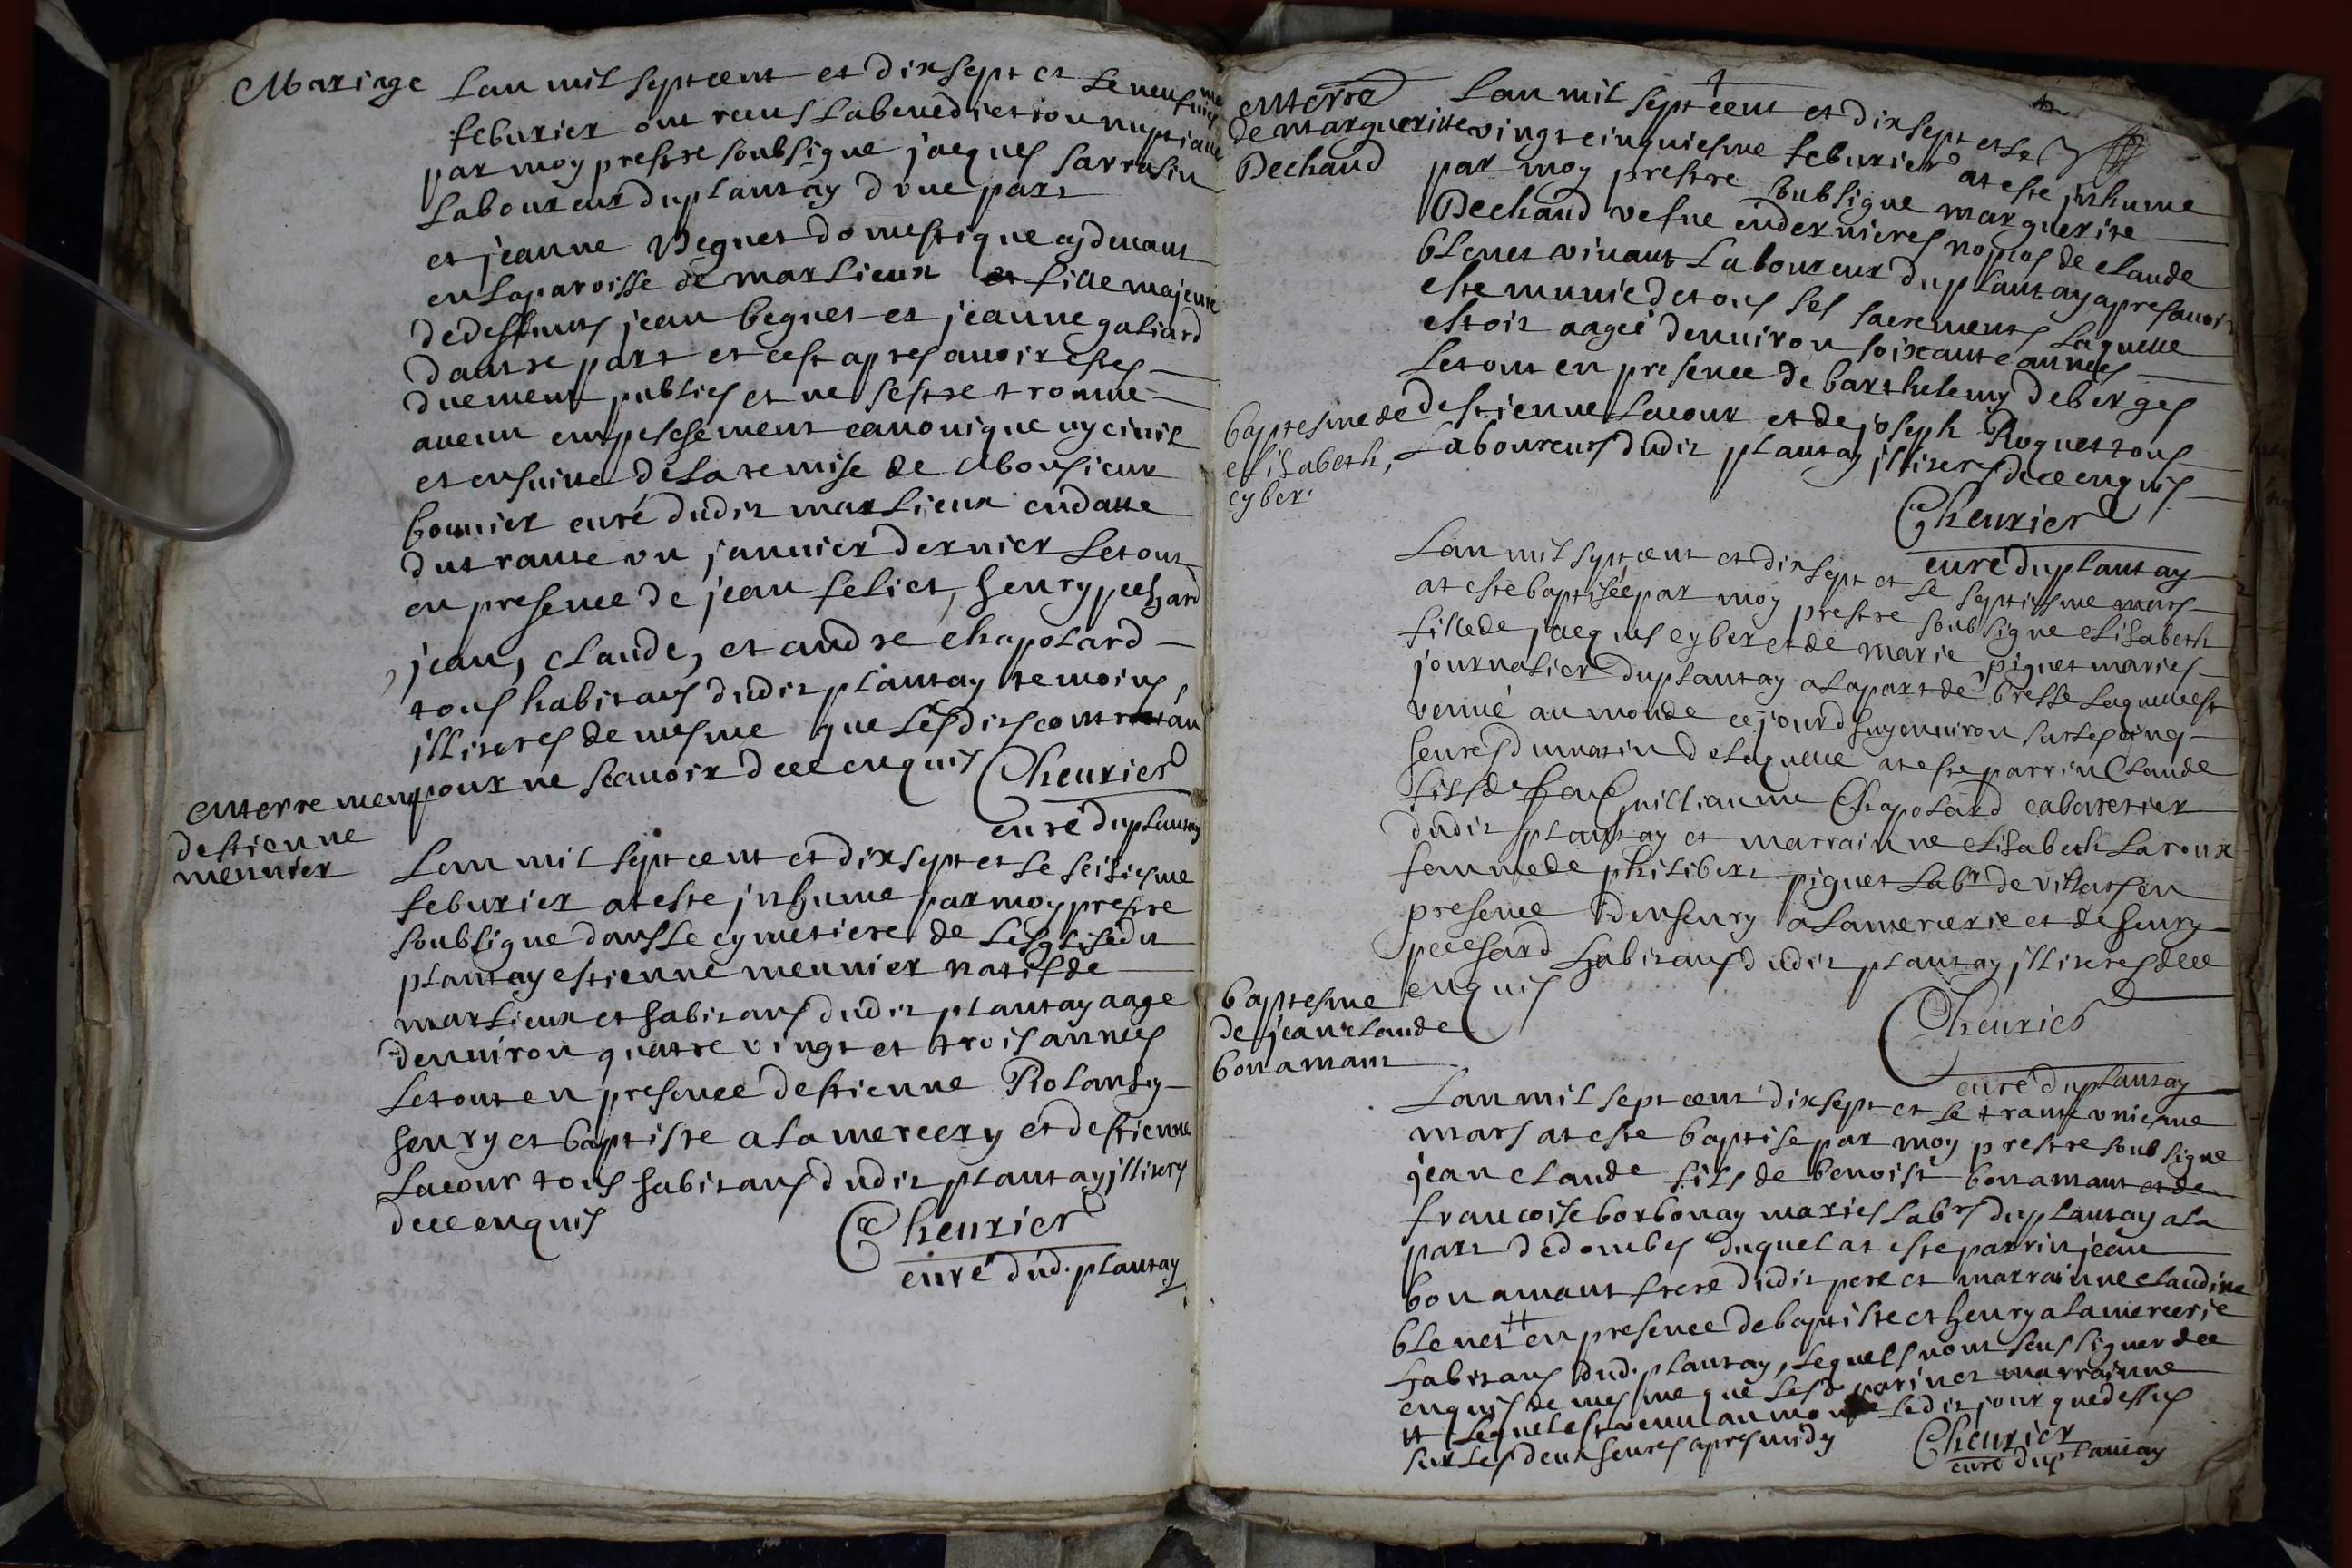 Mariage
Lan mil sept cent et dix sept et le neufuiesme
feburier ont receus la benediction nuptialle
par moy prestre soubsigne jacques sarrasin
Laboureur du plantay d'une part
et jeanne Begnet domestique cydeuant
en la paroisse de marlieux et fille majeure
de deffunts jean begnet et jeanne galiard
dautre part et cest apres auoir estes
duement publies et ne sestre trouue
aucun empeschement canonique ny ciuil
et ensuitte de la remise de Monsieur
bounier curé dudit marlieux en datte
du trante un januier dernier Le tout
en presence de jean feliet, henry pechard
jean, claude, et andre chapolard
tous habitans dudit plantay temoins,
illiteres de mesme que lesdits contratan
pour ne scauoir de ce enquis Cheurier
curé du plantay
Enterrement
destienne
meunier
Lan mil sept cent et dix sept et le seisiesme
feburier at este inhume par moy prestre
soubsigne dans le cymetiere de leglise du
plantay estienne meunier natif de
marlieux et habitans dudit plantay aage
denuiron quatre vingt et trois années
Le tout en presence destienne Rolant
henry et baptiste a lamercery et destienne
Lacour tous habitans dudit plantay illiteres
de ce enquis
Cheurier
curé dud. plantay
enterre
de margueritte
Dechaud
Lan mil sept cent et dix sept et le
vingt cinquiesme feburier at este inhume
par moy prestre soubsigne marguerite
Dechaud vefue en dernieres nopces de claude
blenet viuant Laboureur du plantay apres auoir
este munie de tous les sacrements Laquelle
estoit aagée denuiron soixante années
Le tout en presence de barthelemy deberges
destienne Lacour et de joseph Roguet tous
Laboureurs dudit plantay illiteres de ce enquis
Cheurier
curé du plantay
baptesme de
elisabeth,
cyber.
Lan mil sept cent et dix sept et le septiesme mars
at este baptisée par moy prestre soubsigne elisabeth
fille de jacques cyber et de marie piguet maries
journalier du plantay a la part de bresse Laquelle est
venue au monde ce jourdhuy enuiron sur les cinq
heures du matin de laquelle at este parrin Claude
fils de guilliaume Chapolard cabaretier
dudit plantay et marrainne elisabeth Laroux
femme de philibert piguet Labr de villars en
presence denhenry a lamercerie et de henry
pechard habitans dudit plantay illiteres de ce
enquis
Cheurier
curé du plantay
baptesme
de jean claude
bonamant
Lan mil sept cent dix sept et le trante uniesme
mars at este baptise par moy prestre soubsigne
jean claude fils de benoist bonamant et de
francoise borbonay maries labrs du plantay a la
part de dombes duquel at este parrin jean
bonamant frere dudit pere et marrainne claudine
blenet ++ en presence de baptiste et henry a lamercerie
habitans dud. plantay, lequels nont seus signer de ce
enquis de mesme que lesd. parin et marrainne
++ Lequel est venu au monde ledit jour que dessus
sur les deux heures apres midy
Cheurier
curé du plantay